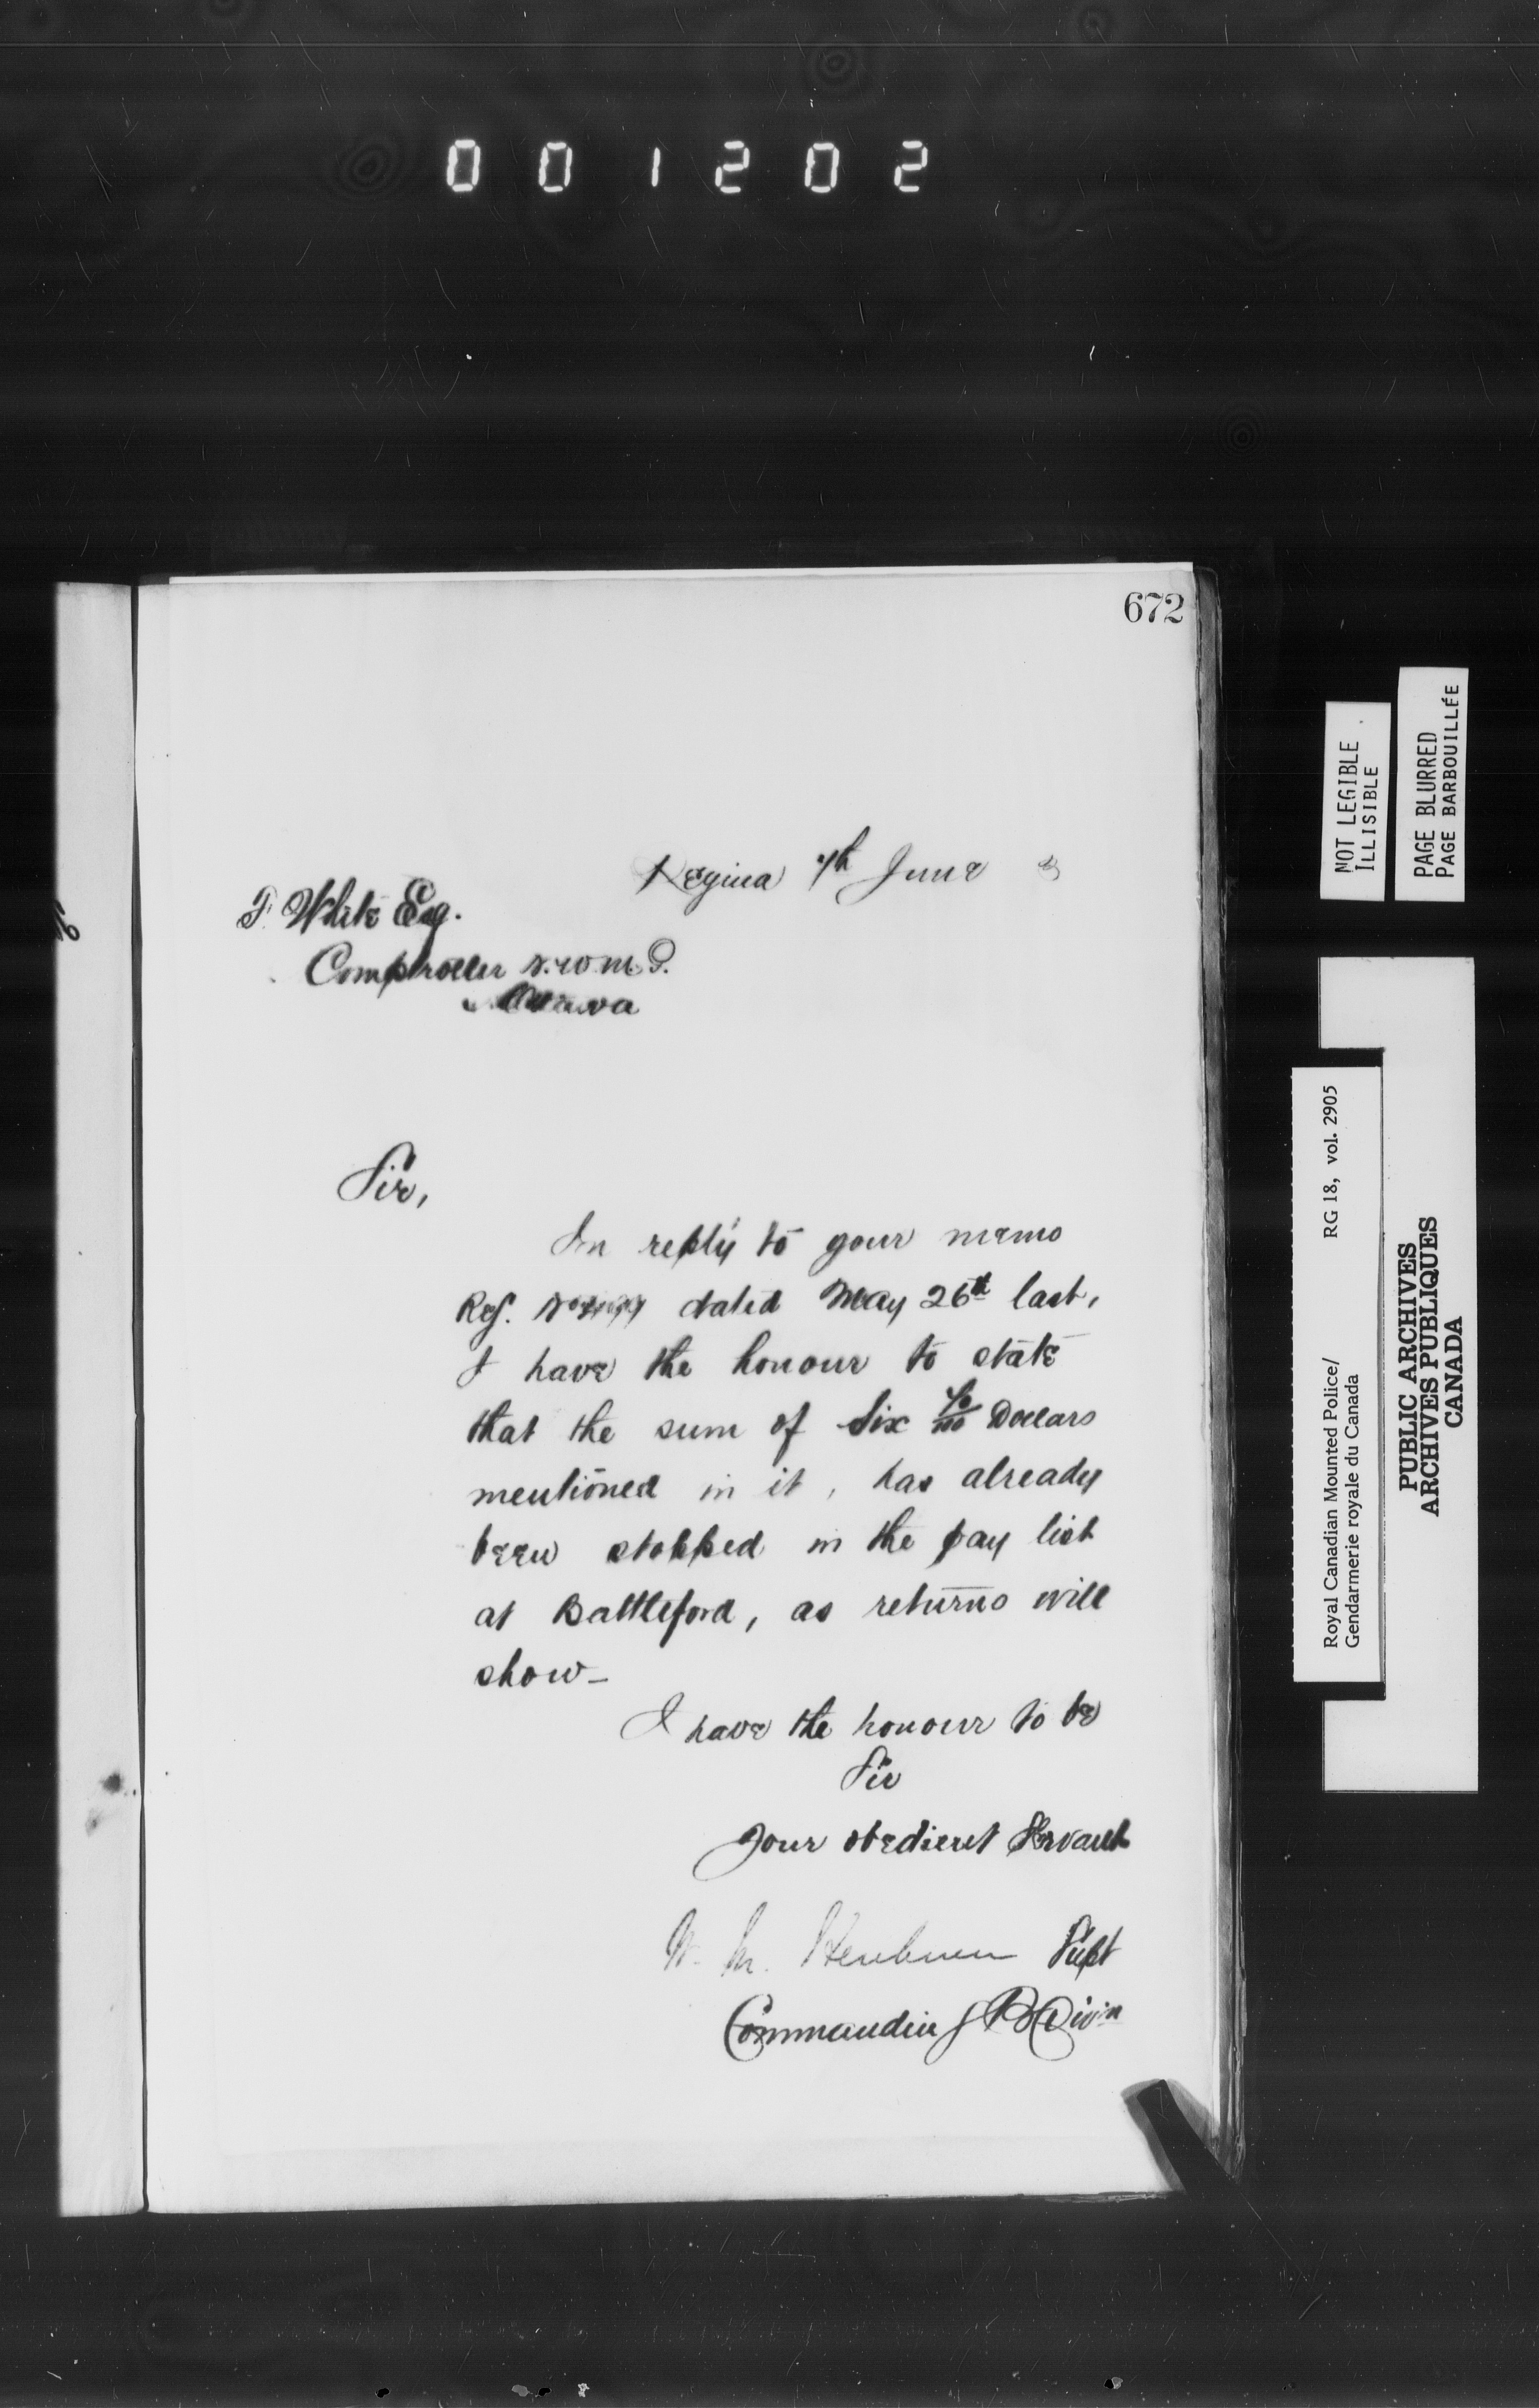 001202
672
Regina 7th June 3
F. White Esq.
Comptroller N.W.M.P.
Ottawa
Sir,
In reply to your memo
Ref. No dated May 26th last,
I have the honour to state
that the sum of Six /100 Dollars
mentioned in it, has already
been stopped in the pay list
at Battleford, as returns will
show—
I have the honour to be
Sir
Your obedient Servant
W. M. Herchmer Supt
Commanding B Divn
NOT LEGIBLE
ILLISIBLE
PAGE BLURRED
PAGE BARBOUILLÉE
Royal Canadian Mounted Police/ RG 18, vol. 2905
Gendarmerie royale du Canada
PUBLIC ARCHIVES
ARCHIVES PUBLIQUES
CANADA